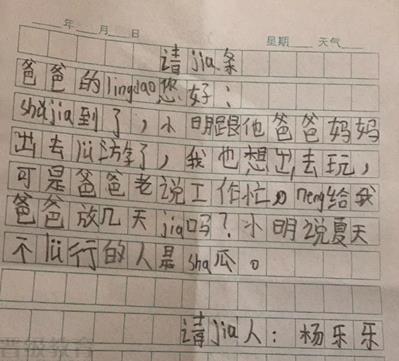 年 月 日 星期 天气
请jia条
爸爸的lingdao您好：
shǔjia到了，小明跟他爸爸妈妈
出去lǚ游了，我也想出去玩，
可是爸爸老说工作忙。neng给我
爸爸放几天jia吗？小明说夏天
不lǚ行的人是sha瓜。
请jia人：杨乐乐
晋级教育